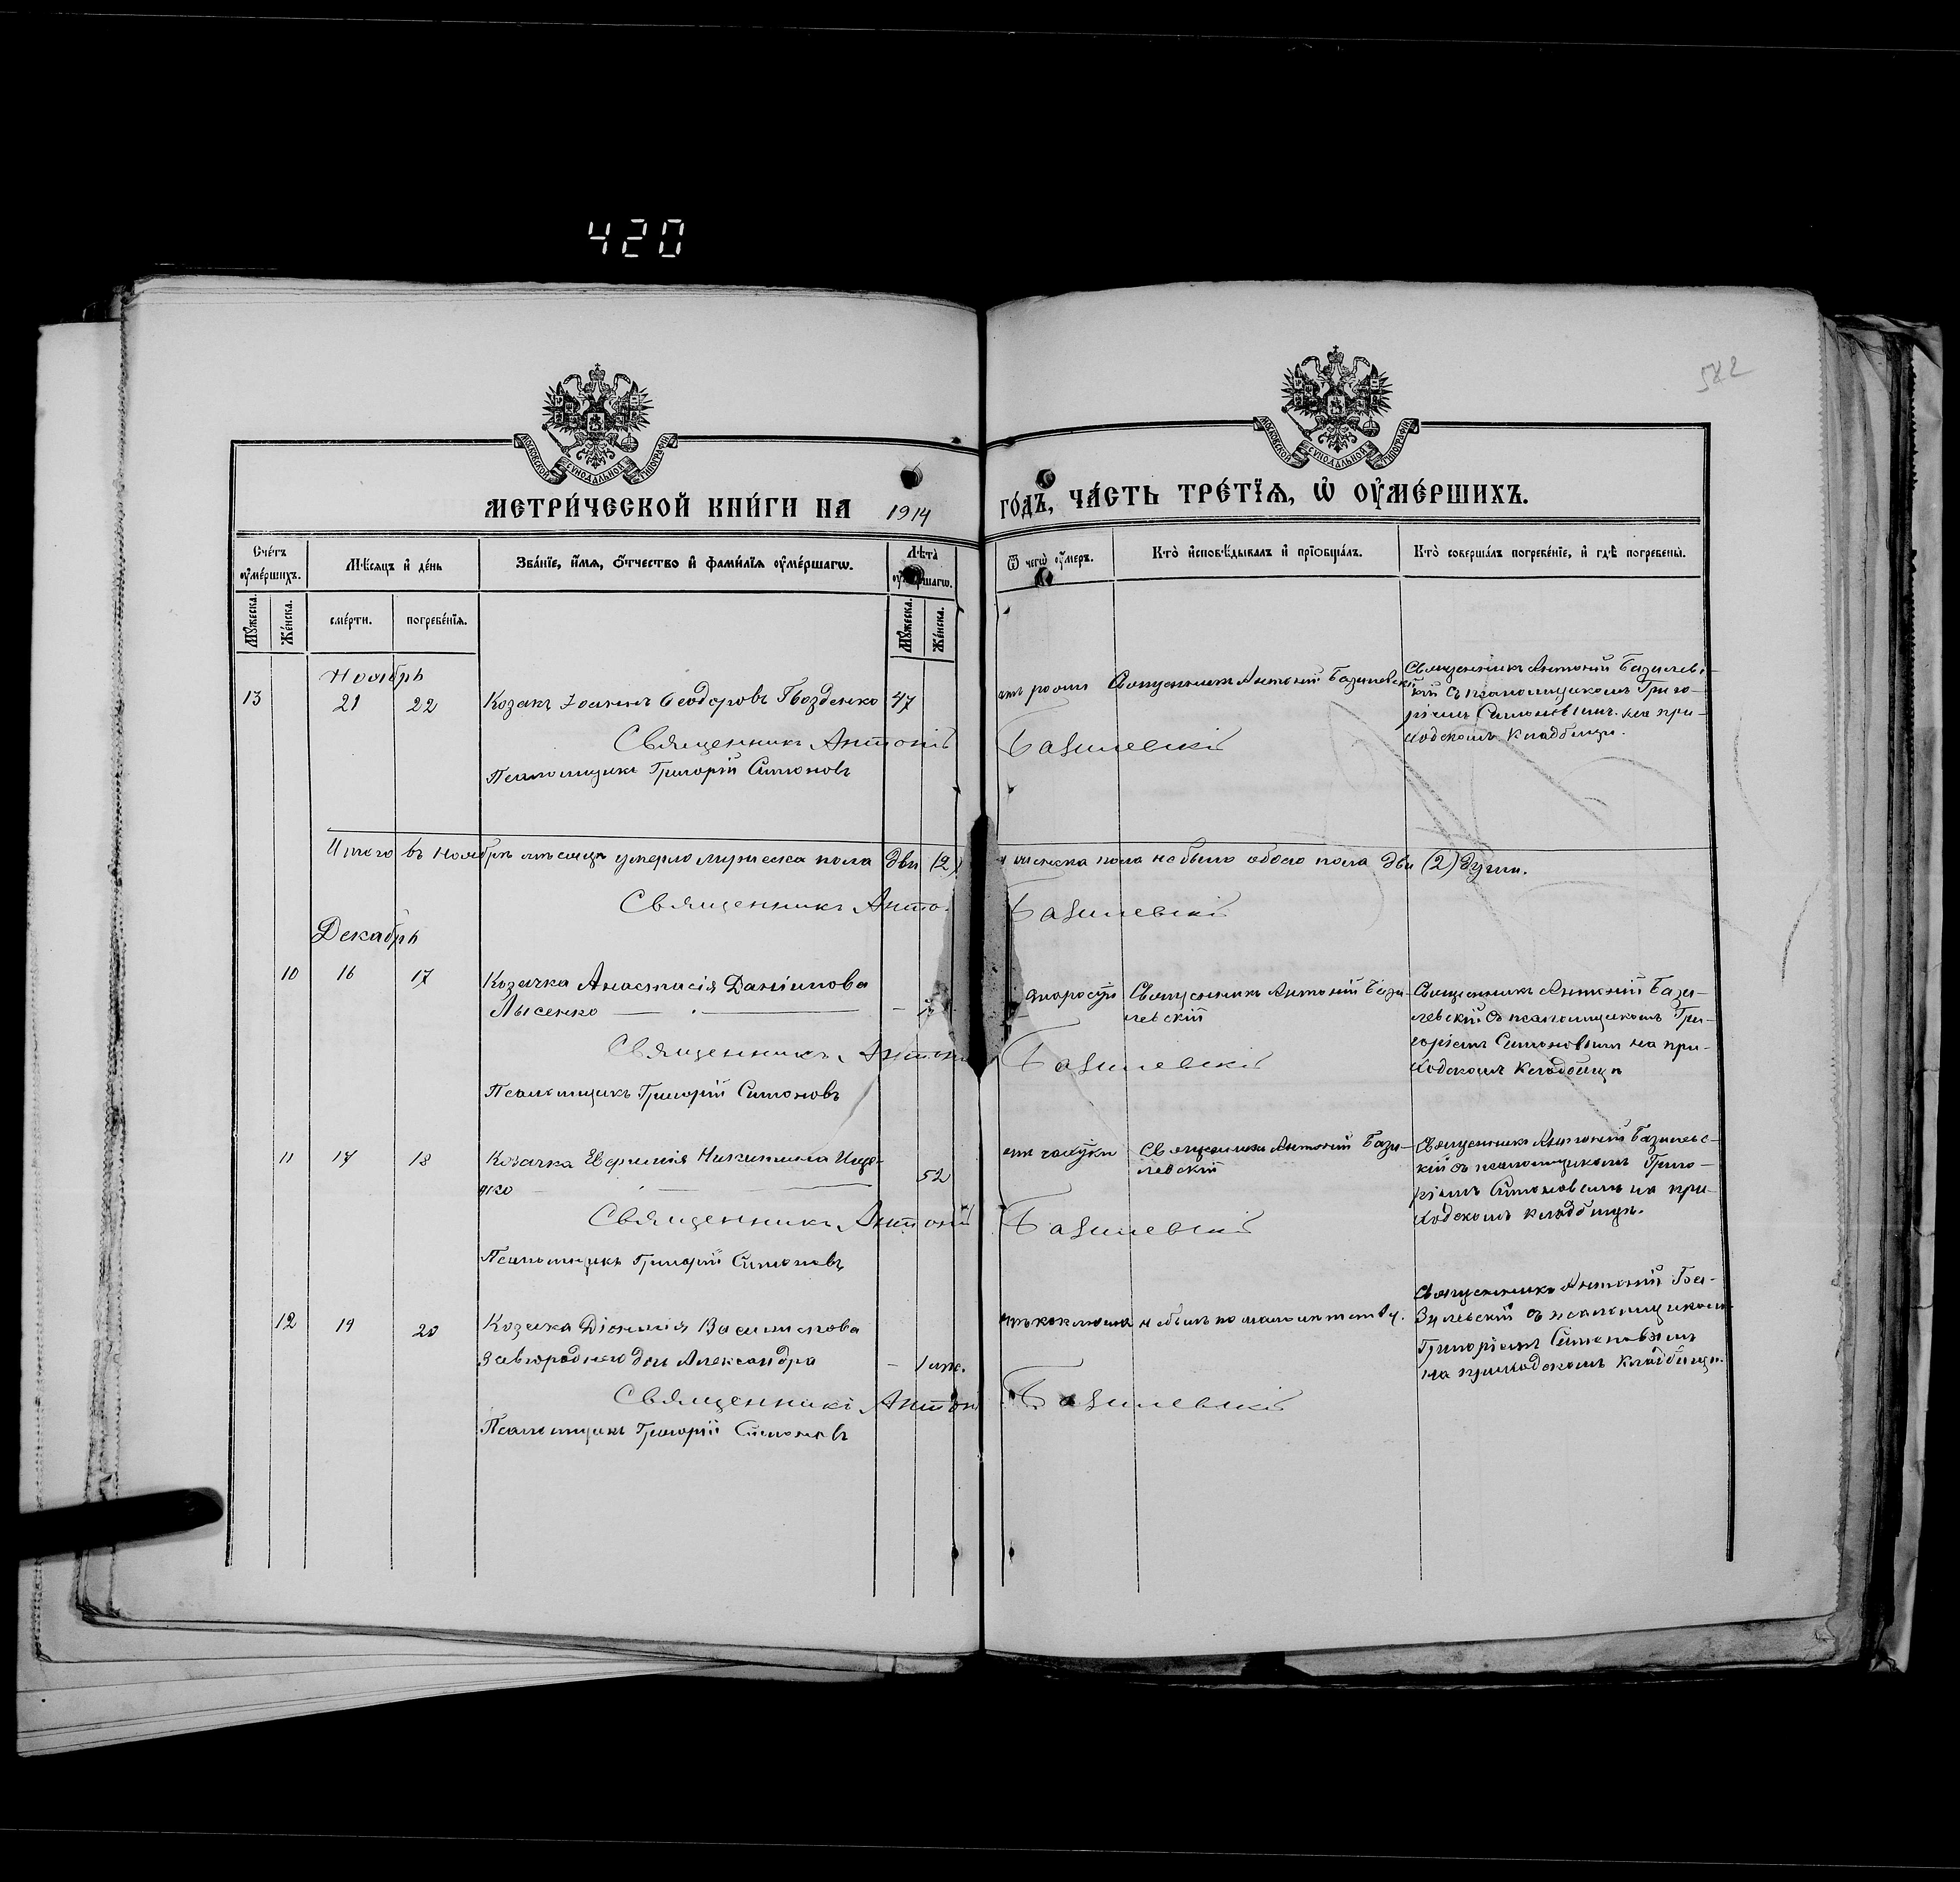 420
582
МОСКОВСКОЙ СУНОДАЛЬНОЙ ТИПОГРАФІИ
МОСКОВСКОЙ СУНОДАЛЬНОЙ ТИПОГРАФІИ
МЕТРИ́ЧЕСКОЙ КНИ́ГИ НА 1914 ГО́ДЪ, ЧА́СТЬ ТРЕ́ТІѦ, Ѡ҆ ОУ҆МЕ́РШИХЪ.
Сче́тъ оу҆ме́ршихъ.
Мѣ́сяцъ и҆ де́нь
Зва́нїе, и҆́мѧ, ѻ҆́тчество и҆ фами́лїѧ оу҆ме́ршагѡ.
Лѣ́та оу҆ме́ршагѡ.
Ѿ чегѡ̀ оу҆́меръ.
Кто̀ и҆сповѣ́дывалъ и҆ прїѡбща́лъ.
Кто̀ соверша́лъ погребе́нїе, и҆ гдѣ̀ погребены̀.
Мꙋ́жеска.
Же́нска.
сме́рти.
погребе́нїѧ.
Мꙋ́жеска.
Же́нска.
Ноябрь
13 21 22 Козакъ Іоаннъ Ѳеодоровъ Гвозденко 47
отъ Священникъ Антоній Базилевскій
Священникъ Антоній Базилевс-
кій съ псаломщикомъ Григо-
ріемъ Симоновымъ на при-
ходскомъ кладбищѣ.
Священникъ Антоній Базилевскій
Псаломщикъ Григорій Симоновъ
Итого въ Ноябрѣ мѣсяцѣ умерло мужеска пола два (2) женска пола не было обоего пола два (2) души.
Священникъ Базилевскій
Декабрь
10 16 17 Козачка Анастасія Даніилова
Лысенко —
старости Священникъ Антоній Бази-
левскій
Священникъ Антоній Бази-
левскій съ псаломщикомъ Гри-
горіемъ Симоновымъ на при-
ходскомъ кладбищѣ
Священникъ Антоній Базилевскій
Псаломщикъ Григорій Симоновъ
11 17 18 Козачка Евфимія Никитина
52
отъ чахотки Священникъ Антоній Бази-
левскій
Священникъ Антоній Базилевс-
кій съ псаломщикомъ Григо-
ріемъ Симоновымъ на при-
ходскомъ кладбищѣ.
Священникъ Антоній Базилевскій
Псаломщикъ Григорій Симоновъ
12 19 20 Козака Діонисія Васильева
Завгороднего дочь Александра — 1 мѣс.
отъ коклюша не былъ по малолѣтству.
Священникъ Антоній Ба-
зилевскій съ псаломщикомъ
Григоріемъ Симоновымъ
на приходскомъ кладбищѣ.
Священникъ Антоній Базилевскій
Псаломщикъ Григорій Симоновъ